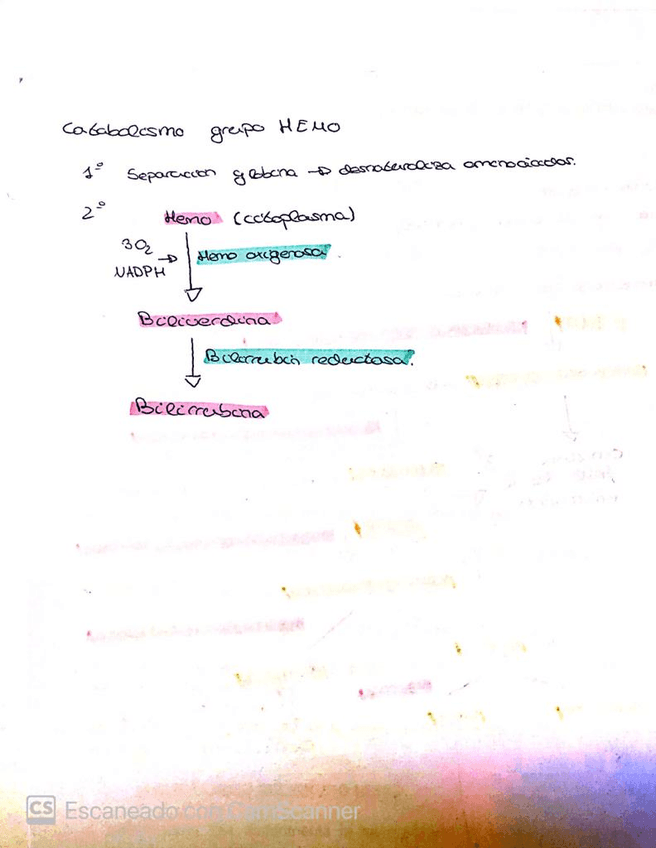 Catabolismo grupo HEMO
1º Separación globina → desnaturaliza aminoácidos.
2º Hemo (citoplasma)
3O₂
NADPH → Hemo oxigenasa.
Biliverdina
Bilirrubin reductasa.
Bilirrubina
CS Escaneado con CamScanner